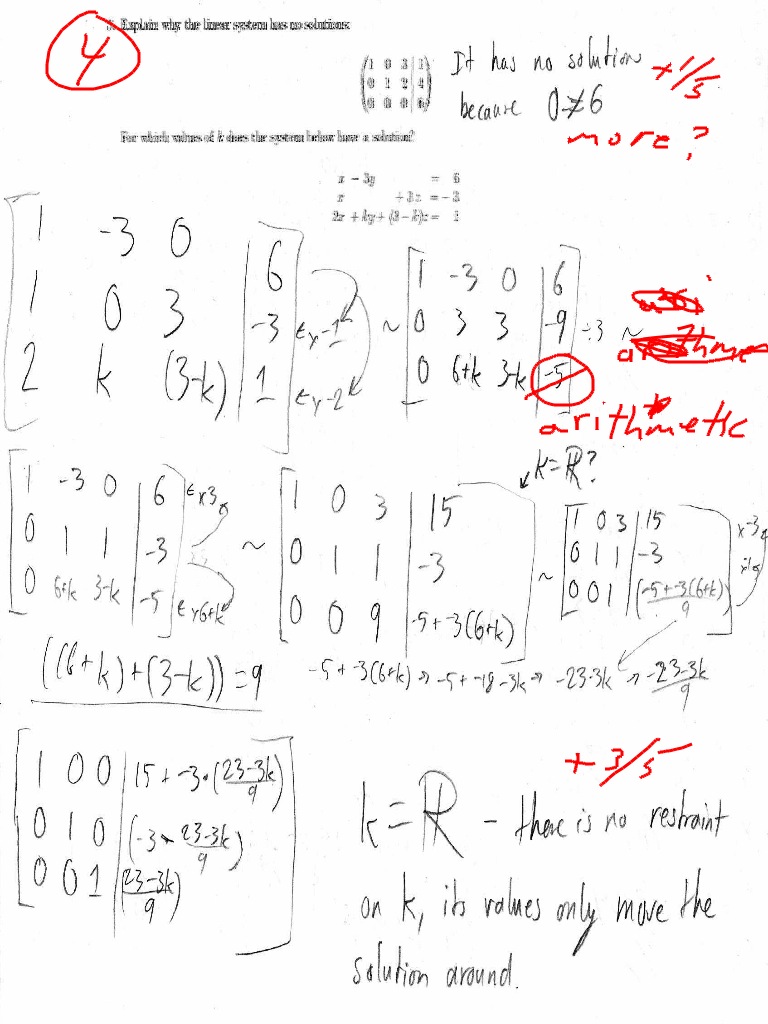 4
Explain why the linear system has no solutions:
1 0 3 | 1
0 1 2 | 4
0 0 0 | 6
It has no solution
because 0≠6
+1/5
more?
For which values of k does the system below have a solution?
x - 3y = 6
x + 3z = -3
2x + ky + (3 - k)z = 1
1 -3 0 | 6
1 0 3 | -3
2 k (3-k) | 1
~
1 -3 0 | 6
0 3 3 | -9 ÷3 ~
0 6+k 3-k | -5
arithmetic
k=ℝ?
1 -3 0 | 6
0 1 1 | -3
0 6+k 3-k | -5
~
1 0 3 | 15
0 1 1 | -3
0 0 9 | -5+-3(6+k)
~
1 0 3 | 15
0 1 1 | -3
0 0 1 | (-5+-3(6+k))/9
((6+k)+(3-k))=9
-5+-3(6+k) → -5+-18-3k → -23-3k → -23-3k/9
1 0 0 | 15+-3·(23-3k/9)
0 1 0 | (-3 - 23-3k/9)
0 0 1 | (23-3k/9)
+3/5
k=ℝ - there is no restraint
on k, its values only move the
solution around.